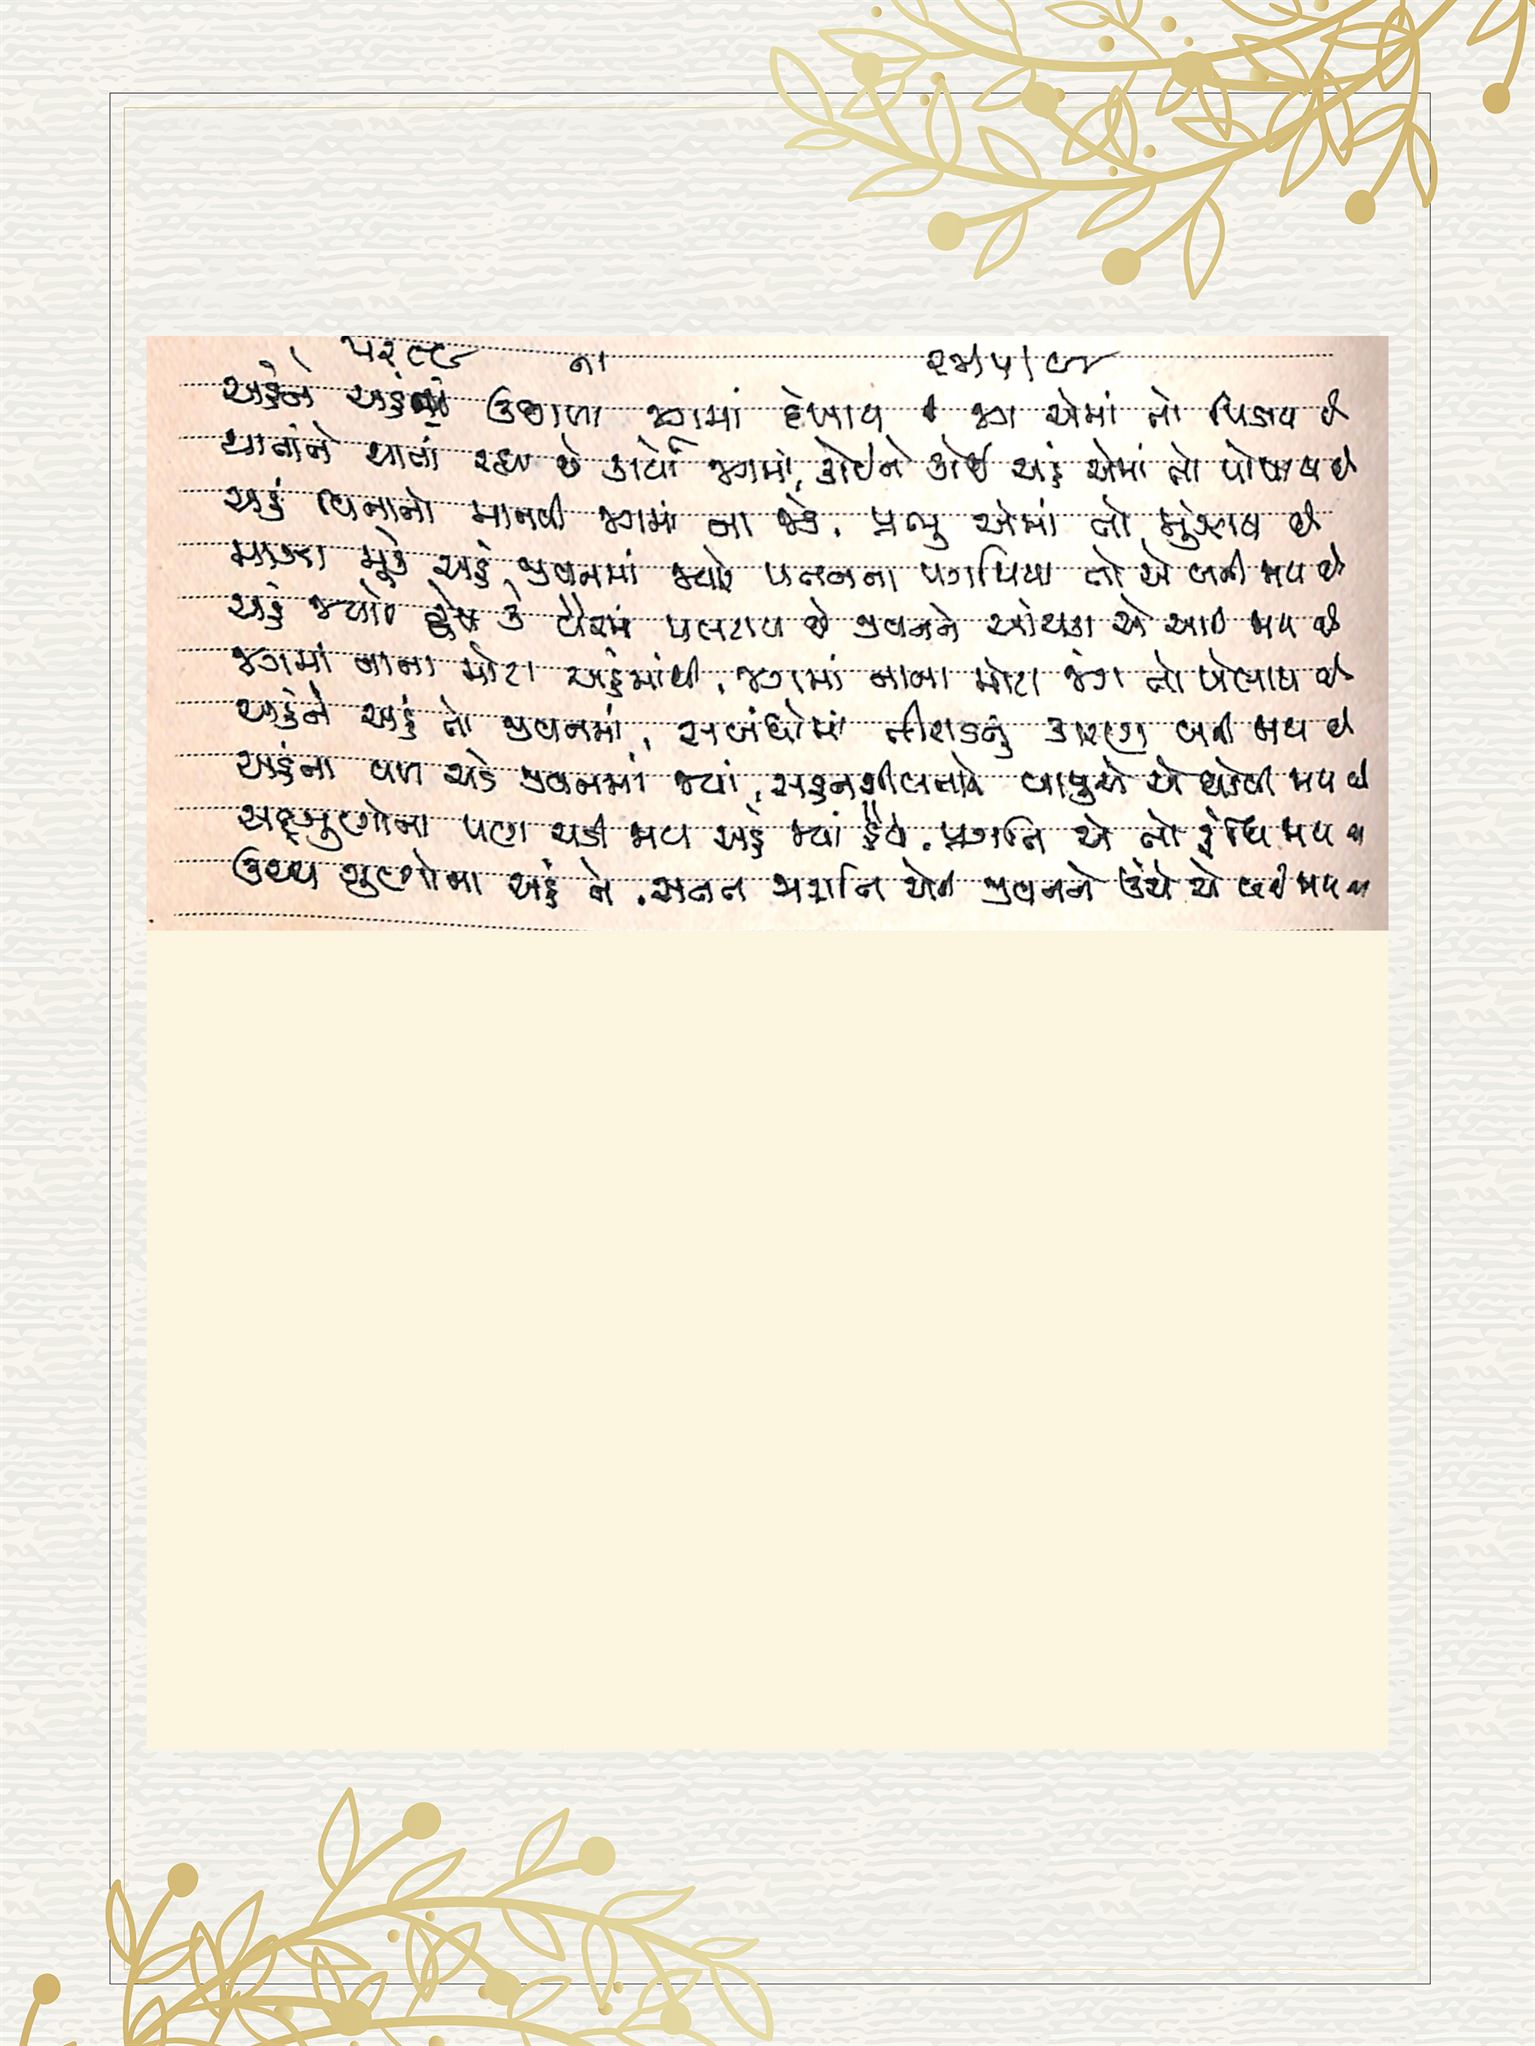 ૫૨૯૯ ના ૨૪/૫/૯૪
અહંને અહંના ઉછાળા જગમાં દેખાય છે જગ એમાં તો પિડાય છે
થાતાંને થાતાં રહ્યા છે કાર્યો જગમાં, કોઈને કોઈ અહં એમાં તો પોષાય છે
અહં વિનાનો માનવી જગમાં ના જડે, પ્રભુ એમાં તો મુંઝાય છે
માઝા મૂકે અહં જીવનમાં જ્યારે પતનના પગથિયા તો એ બની જાય છે
અહં જ્યારે દ્વેષ કે વૈરમાં પલટાય છે જીવનને એ જાય છે
જગમાં નાના મોટા અહંમાંથી, જગમાં નાના મોટા જંગ તો ખેલાય છે
અહંને અહં તો જીવનમાં, સબંધોમાં તીરાડનું કારણ બની જાય છે
અહંના વળ ચડે જીવનમાં જ્યાં, સહનશીલતાને એ જાય છે
સદ્‌ગુણોના પણ ચડી જાય અહં જ્યાં હૈયે, પ્રગતિ એ તો રૂંધિ જાય છે
ઉચ્ચ ગુણોના અહં ને, સતત જીવનને ઉંચે એ લઈ જાય છે